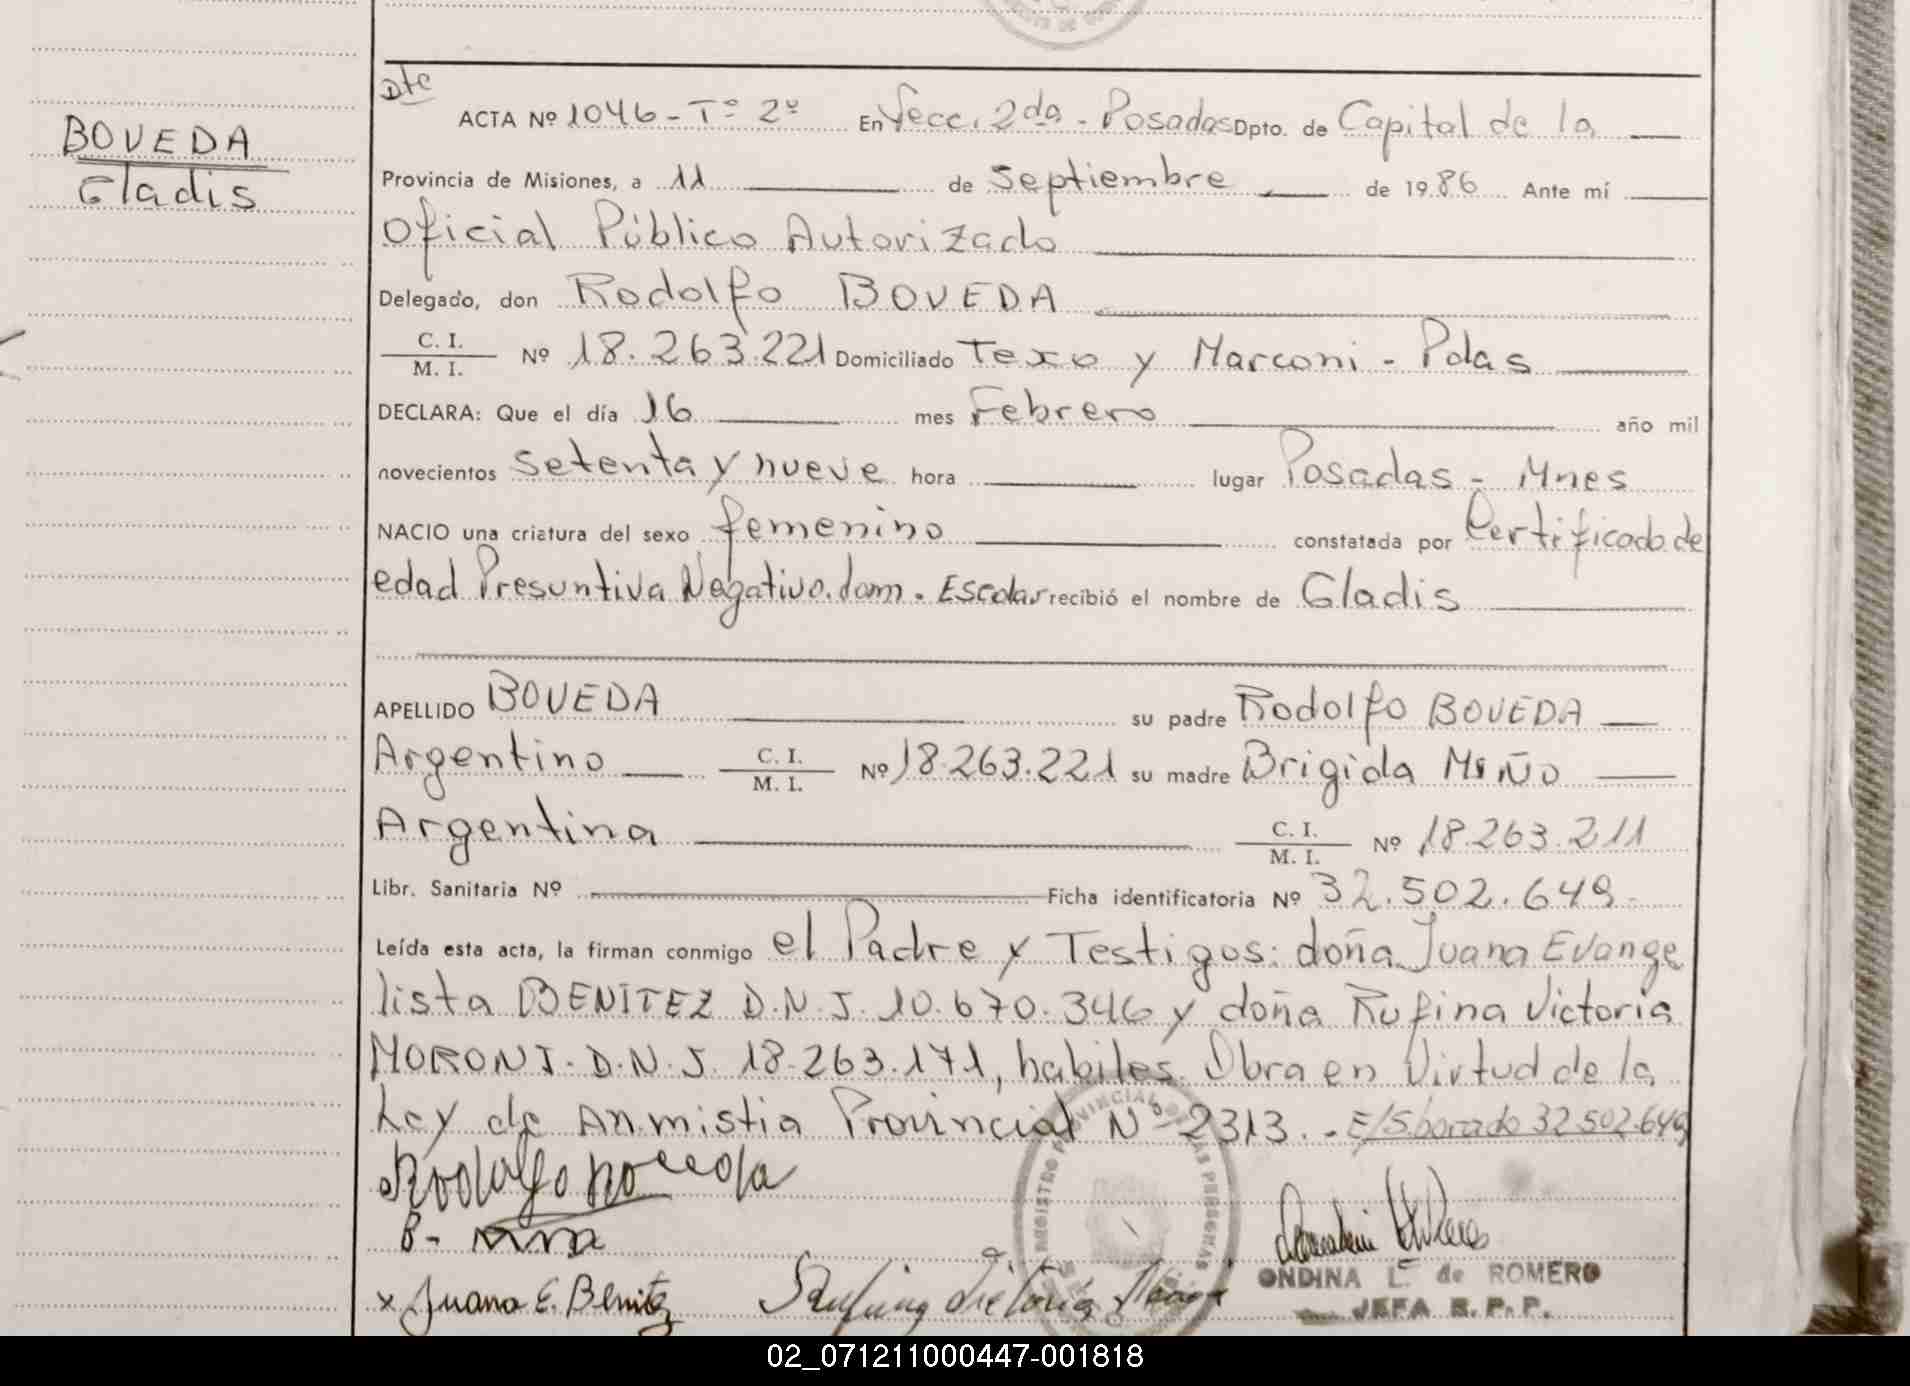 BOVEDA
Gladis
Dtc
ACTA Nº 1046 - Tº 2º En Secc. 2da - Posadas Dpto. de Capital de la
Provincia de Misiones, a 11 de Septiembre de 1986 Ante mí
Oficial Público Autorizado
Delegado, don Rodolfo BOVEDA
C. I.
M. I.
Nº 18.263.221 Domiciliado Texo y Marconi - Pdas
DECLARA: Que el día 16 mes Febrero año mil
novecientos setenta y nueve hora lugar Posadas - Mnes
NACIO una criatura del sexo femenino constatada por Certificado de
edad Presuntiva Negativo. dom. Escolar recibió el nombre de Gladis
APELLIDO BOVEDA su padre Rodolfo BOVEDA
Argentino C. I. M. I. Nº 18.263.221 su madre Brigida MiÑo
Argentina C. I. M. I. Nº 18.263.211
Libr. Sanitaria Nº Ficha identificatoria Nº 32.502.649
Leída esta acta, la firman conmigo el Padre y Testigos: doña Juana Evange
lista BENITEZ D.N.J. 10.670.346 y doña Rufina Victoria
MORONJ. D.N.J. 18.263.171, habiles. Obra en Virtud de la
Ley de Anmistia Provincial Nº 2313. - E/S. borado 32.502.649
Rodolfo Boveda
B.
x Juana E. Benitez
Rufina Vitoria
REGISTRO PROVINCIAL DE LAS PERSONAS
ONDINA L. de ROMERO
JEFA R. P. P.
02_071211000447-001818